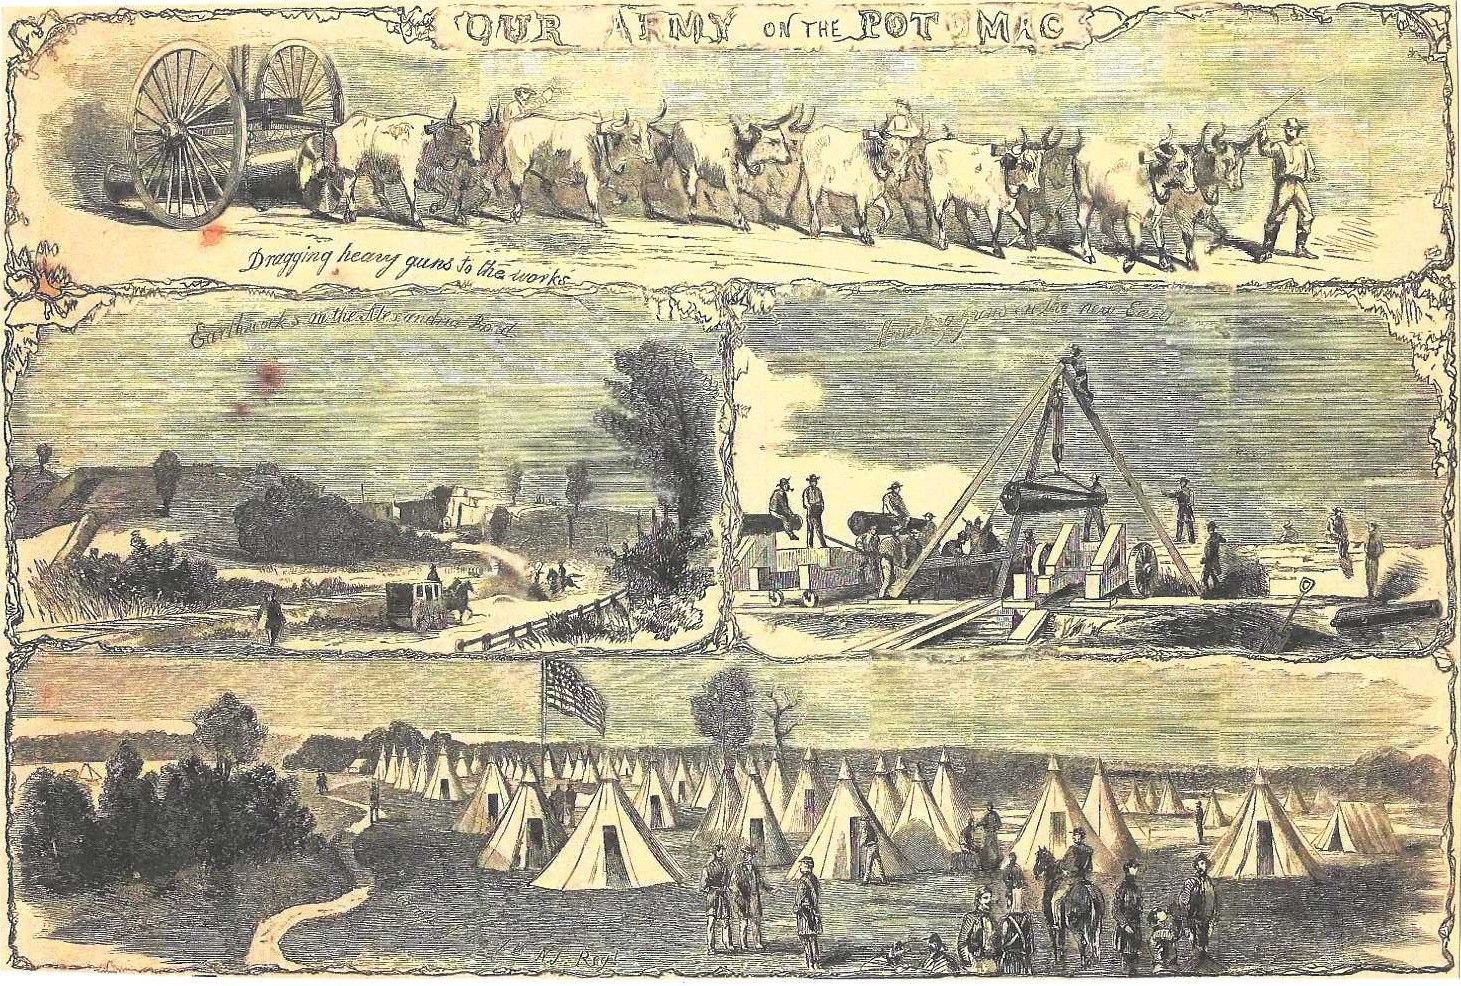 OUR ARMY ON THE POTOMAC
Dragging heavy guns to the works
Earthworks on the Alexandria Road
guns on the new
N.J. Regt